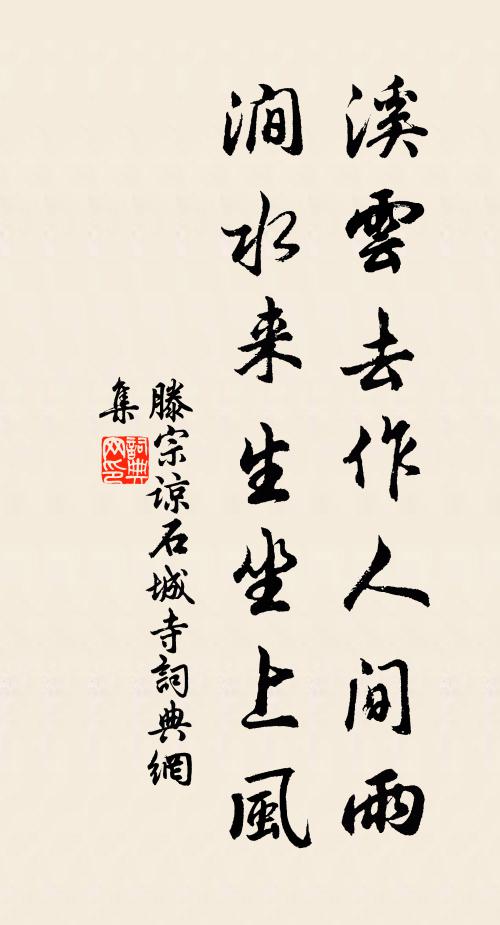 溪雲去作人间雨
澗水来生坐上風
滕宗諒石城寺詞典網
集
詞典
网印